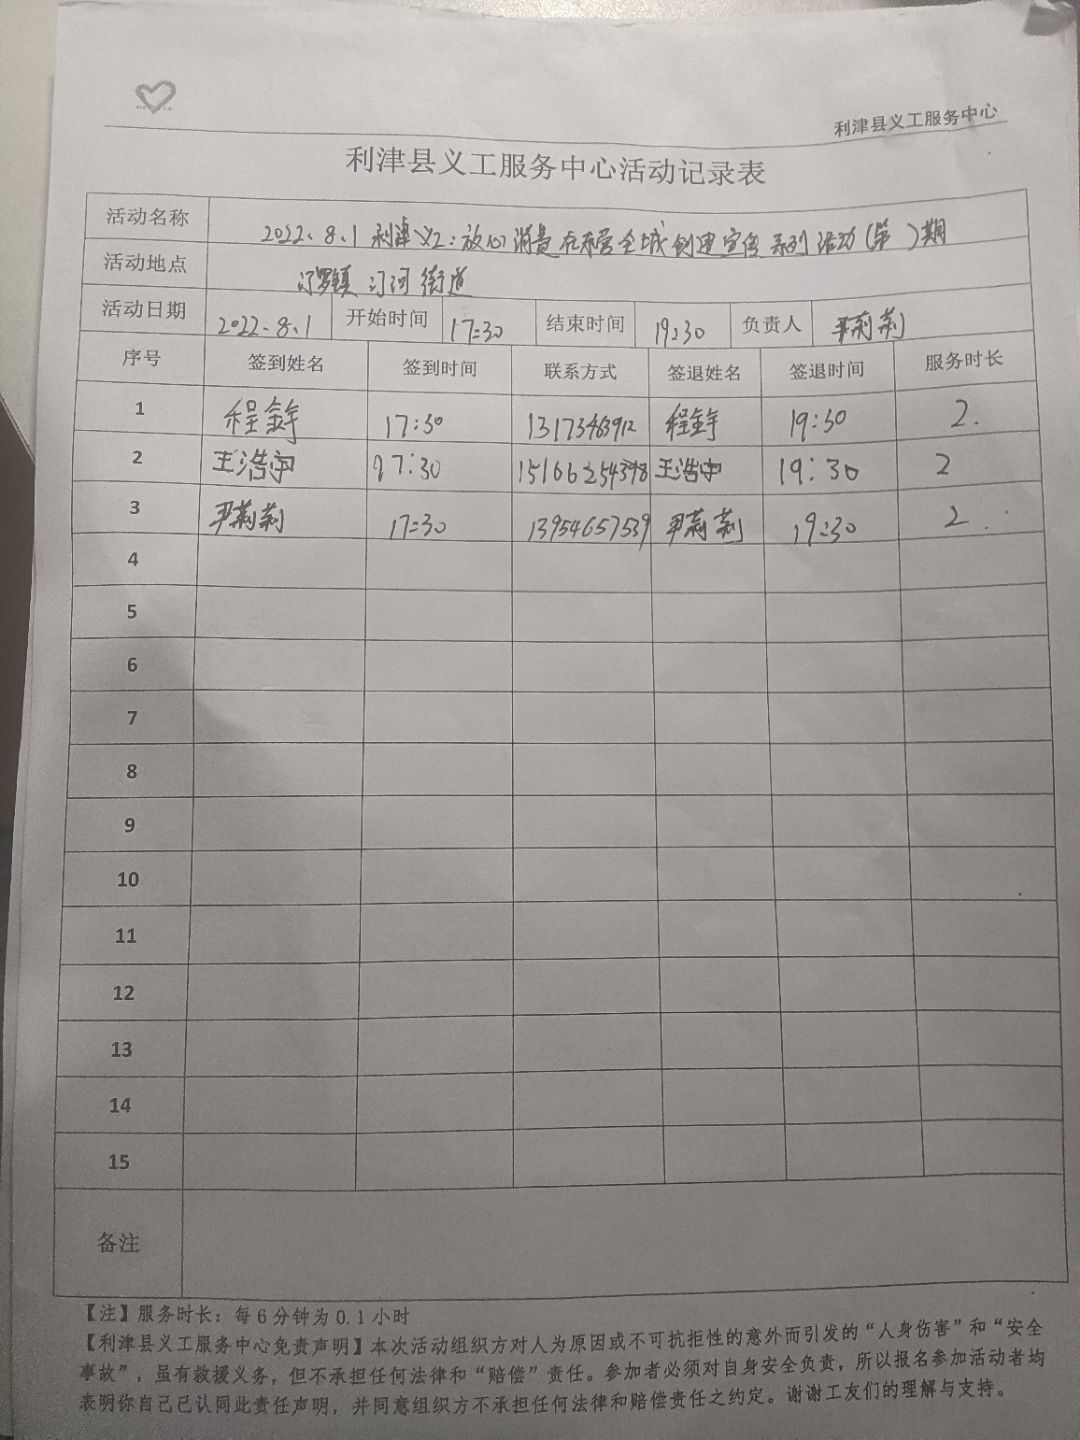 利津县义工服务中心
利津县义工服务中心活动记录表
活动名称 2022.8.1 利津义工:放心消费在东营全城创建宣传系列活动(第 )期
活动地点 汀罗镇 汀河街道
活动日期 2022.8.1 开始时间 17:30 结束时间 19:30 负责人 尹莉莉
序号 签到姓名 签到时间 联系方式 签退姓名 签退时间 服务时长
1 17:30 19:30 2.
2 王浩宇 17:30 王浩宇 19:30 2
3 尹莉莉 17:30 13954657539 尹莉莉 19:30 2
4
5
6
7
8
9
10
11
12
13
14
15
备注
【注】服务时长：每6分钟为0.1小时
【利津县义工服务中心免责声明】本次活动组织方对人为原因或不可抗拒性的意外而引发的“人身伤害”和“安全
事故”，虽有救援义务，但不承担任何法律和“赔偿”责任。参加者必须对自身安全负责，所以报名参加活动者均
表明你自己已认同此责任声明，并同意组织方不承担任何法律和赔偿责任之约定。谢谢工友们的理解与支持。